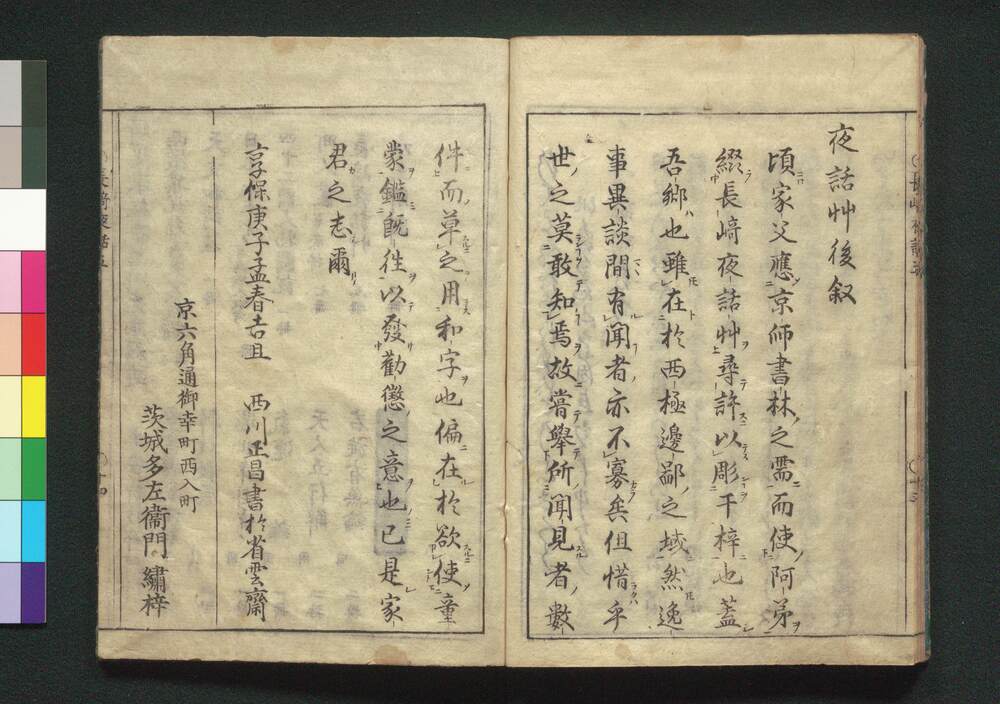 夜話艸後叙
頃家父應京師書林之需而使阿弟
綴長﨑夜話艸尋許以彫于梓也蓋
吾鄉也雖在於西極邊鄙之域然逸
事異談間有聞者亦不寡矣但惜乎
世之莫敢知焉故嘗舉所聞見者數
件而草之用和字也偏在於欲使童
蒙鑑既徃以發勸懲之意也已是家
君之志爾
享保庚子孟春吉旦 西川正昌書於省雲齋
京六角通御幸町西入町
茨城多左衞門繡梓